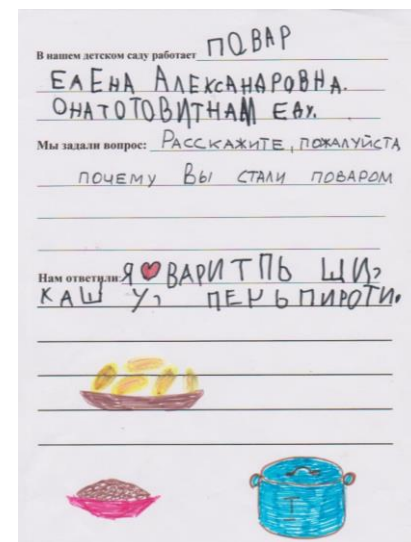 В нашем детском саду работает ПОВАР
ЕЛЕНА АЛЕКСАНДРОВНА.
ОНАТОТОВИТНАМ ЕДУ.
Мы задали вопрос: РАССКАЖИТЕ, ПОЖАЛУЙСТА
ПОЧЕМУ ВЫ СТАЛИ ПОВАРОМ
Нам ответили: Я ❤ ВАРИТПЬ ЩИ,
КАШ У, ПЕЧЬПИРОТИ.